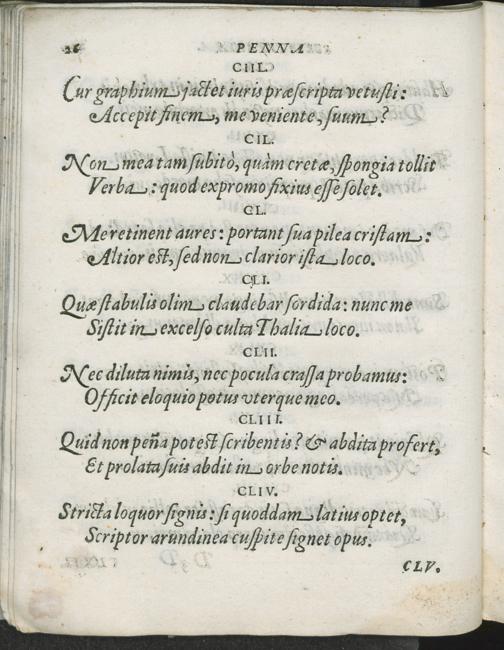 26 PENNA
CIIL.
Cur graphium jactet iuris præscripta vetusti:
Accepit finem, me veniente, suum?
CIL.
Non mea tam subitò, quàm cretæ, spongia tollit
Verba: quod expromo fixius esse solet.
CL.
Me retinent aures: portant sua pilea cristam:
Altior est, sed non clarior ista loco.
CLI.
Quæ stabulis olim claudebar sordida: nunc me
Sistit in excelso culta Thalia loco.
CLII.
Nec diluta nimis, nec pocula crassa probamus:
Officit eloquio potus vterque meo.
CLIII.
Quid non peña potest scribentis? & abdita profert,
Et prolata suis abdit in orbe notis.
CLIV.
Stricta loquor signis: si quoddam latius optet,
Scriptor arundinea cuspite signet opus.
CLV.